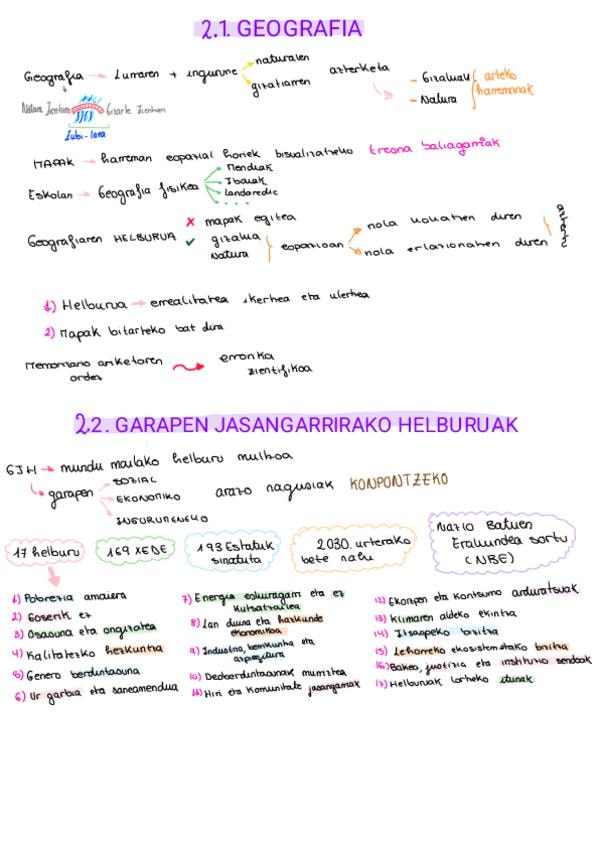 2.1. GEOGRAFIA
Geografia → Lurraren + ingurune naturalen gizatiarren azterketa
- Gizakiak
- Natura
arteko harremanak
Natura Zientzien
Gizarte Zientzien
Zubi-lana
MAPAK → harreman espazial horiek bisualizatzeko tresna baliagarriak
Eskolan → Geografia fisikoa
Mendiak
Ibaiak
landaredic
. . . .
Geografiaren HELBURUA
✗ mapak egitea
✓ gizakia Natura } espazioan
nola kokatzen diren
nola erlazionatzen diren
aztertu
1) Helburua → errealitatea ikertzea eta ulertzea
2) Mapak bitarteko bat dira
Memoriazko ariketaren ordez
erronka zientifikoa
2.2. GARAPEN JASANGARRIRAKO HELBURUAK
GJH → mundu mailako helburu multzoa
↳ garapen
SOZIAL
EKONOMIKO
INGURUMENEKO
arazo nagusiak KONPONTZEKO
17 helburu
169 XEDE
193 Estatuk sinatuta
2030. urterako bete nahi
Nazio Batuen Erakundeak sortu (NBE)
1) Pobrezia amaiera
2) Goserik ez
3) Osasuna eta ongizatea
4) Kalitatezko hezkuntza
5) Genero berdintasuna
6) Ur garbia eta saneamendua
7) Energia eskuragarri eta ez kutsatzailea
8) Lan duina eta hazkunde ekonomikoa
9) Industria, berrikuntza eta azpiegitura
10) Desberdintasunak murriztea
11) Hiri eta komunitate jasangarriak
12) Ekoizpen eta kontsumo arduratsuak
13) Klimaren aldeko ekintza
14) Itsaspeko bizitza
15) Lehorreko ekosistemetako bizitza
16) Bakea, justizia eta instituzio sendoak
17) Helburuak lortzeko itunak